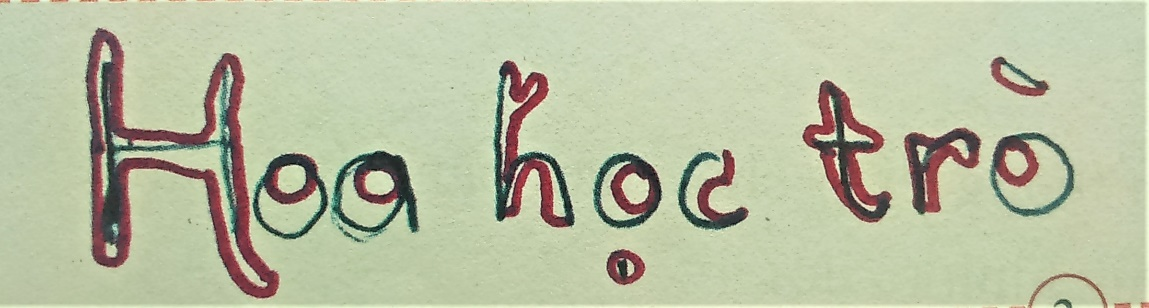 Hoa học trò